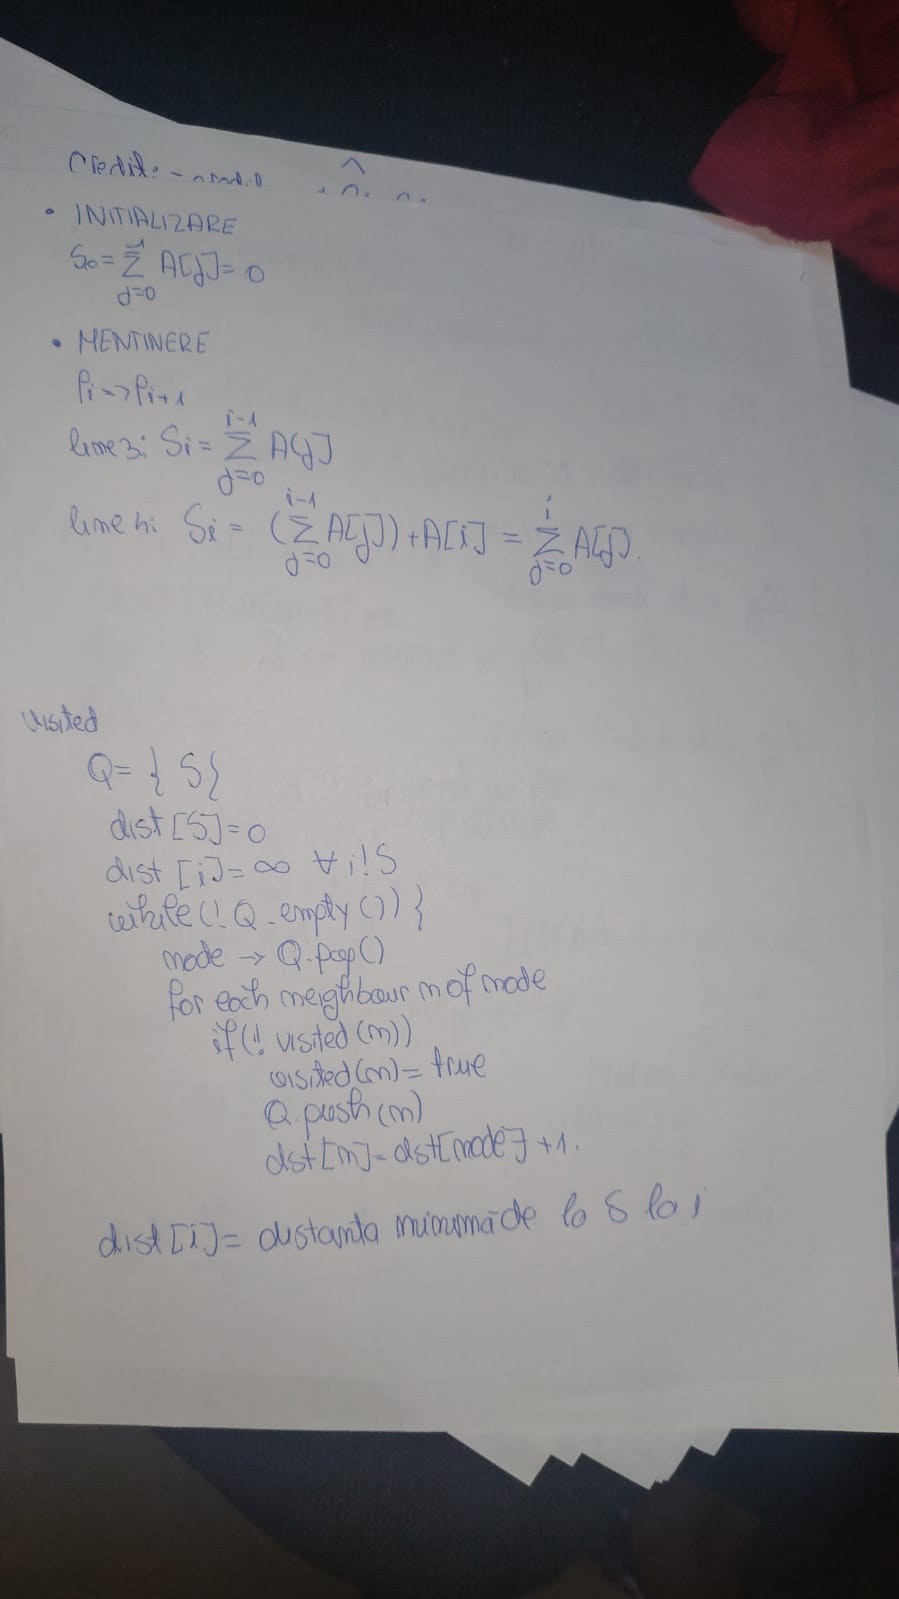 Credit: -
• INITIALIZARE
S0 = Σ_{j=0}^{-1} A[j] = 0
• MENTINERE
Pi -> Pi+1
linie 3: Si = Σ_{j=0}^{i-1} A[j]
linie 4: Si = (Σ_{j=0}^{i-1} A[j]) + A[i] = Σ_{j=0}^{i} A[j].
visited
Q = } S {
dist [S] = 0
dist [i] = ∞ ∀ i! S
while (! Q.empty ()) }
node → Q.pop()
for each neighbour n of node
if (! visited (n))
visited (n) = true
Q.push (n)
dist [n] = dist[node] + 1.
dist [i] = distanta minimă de la S la i